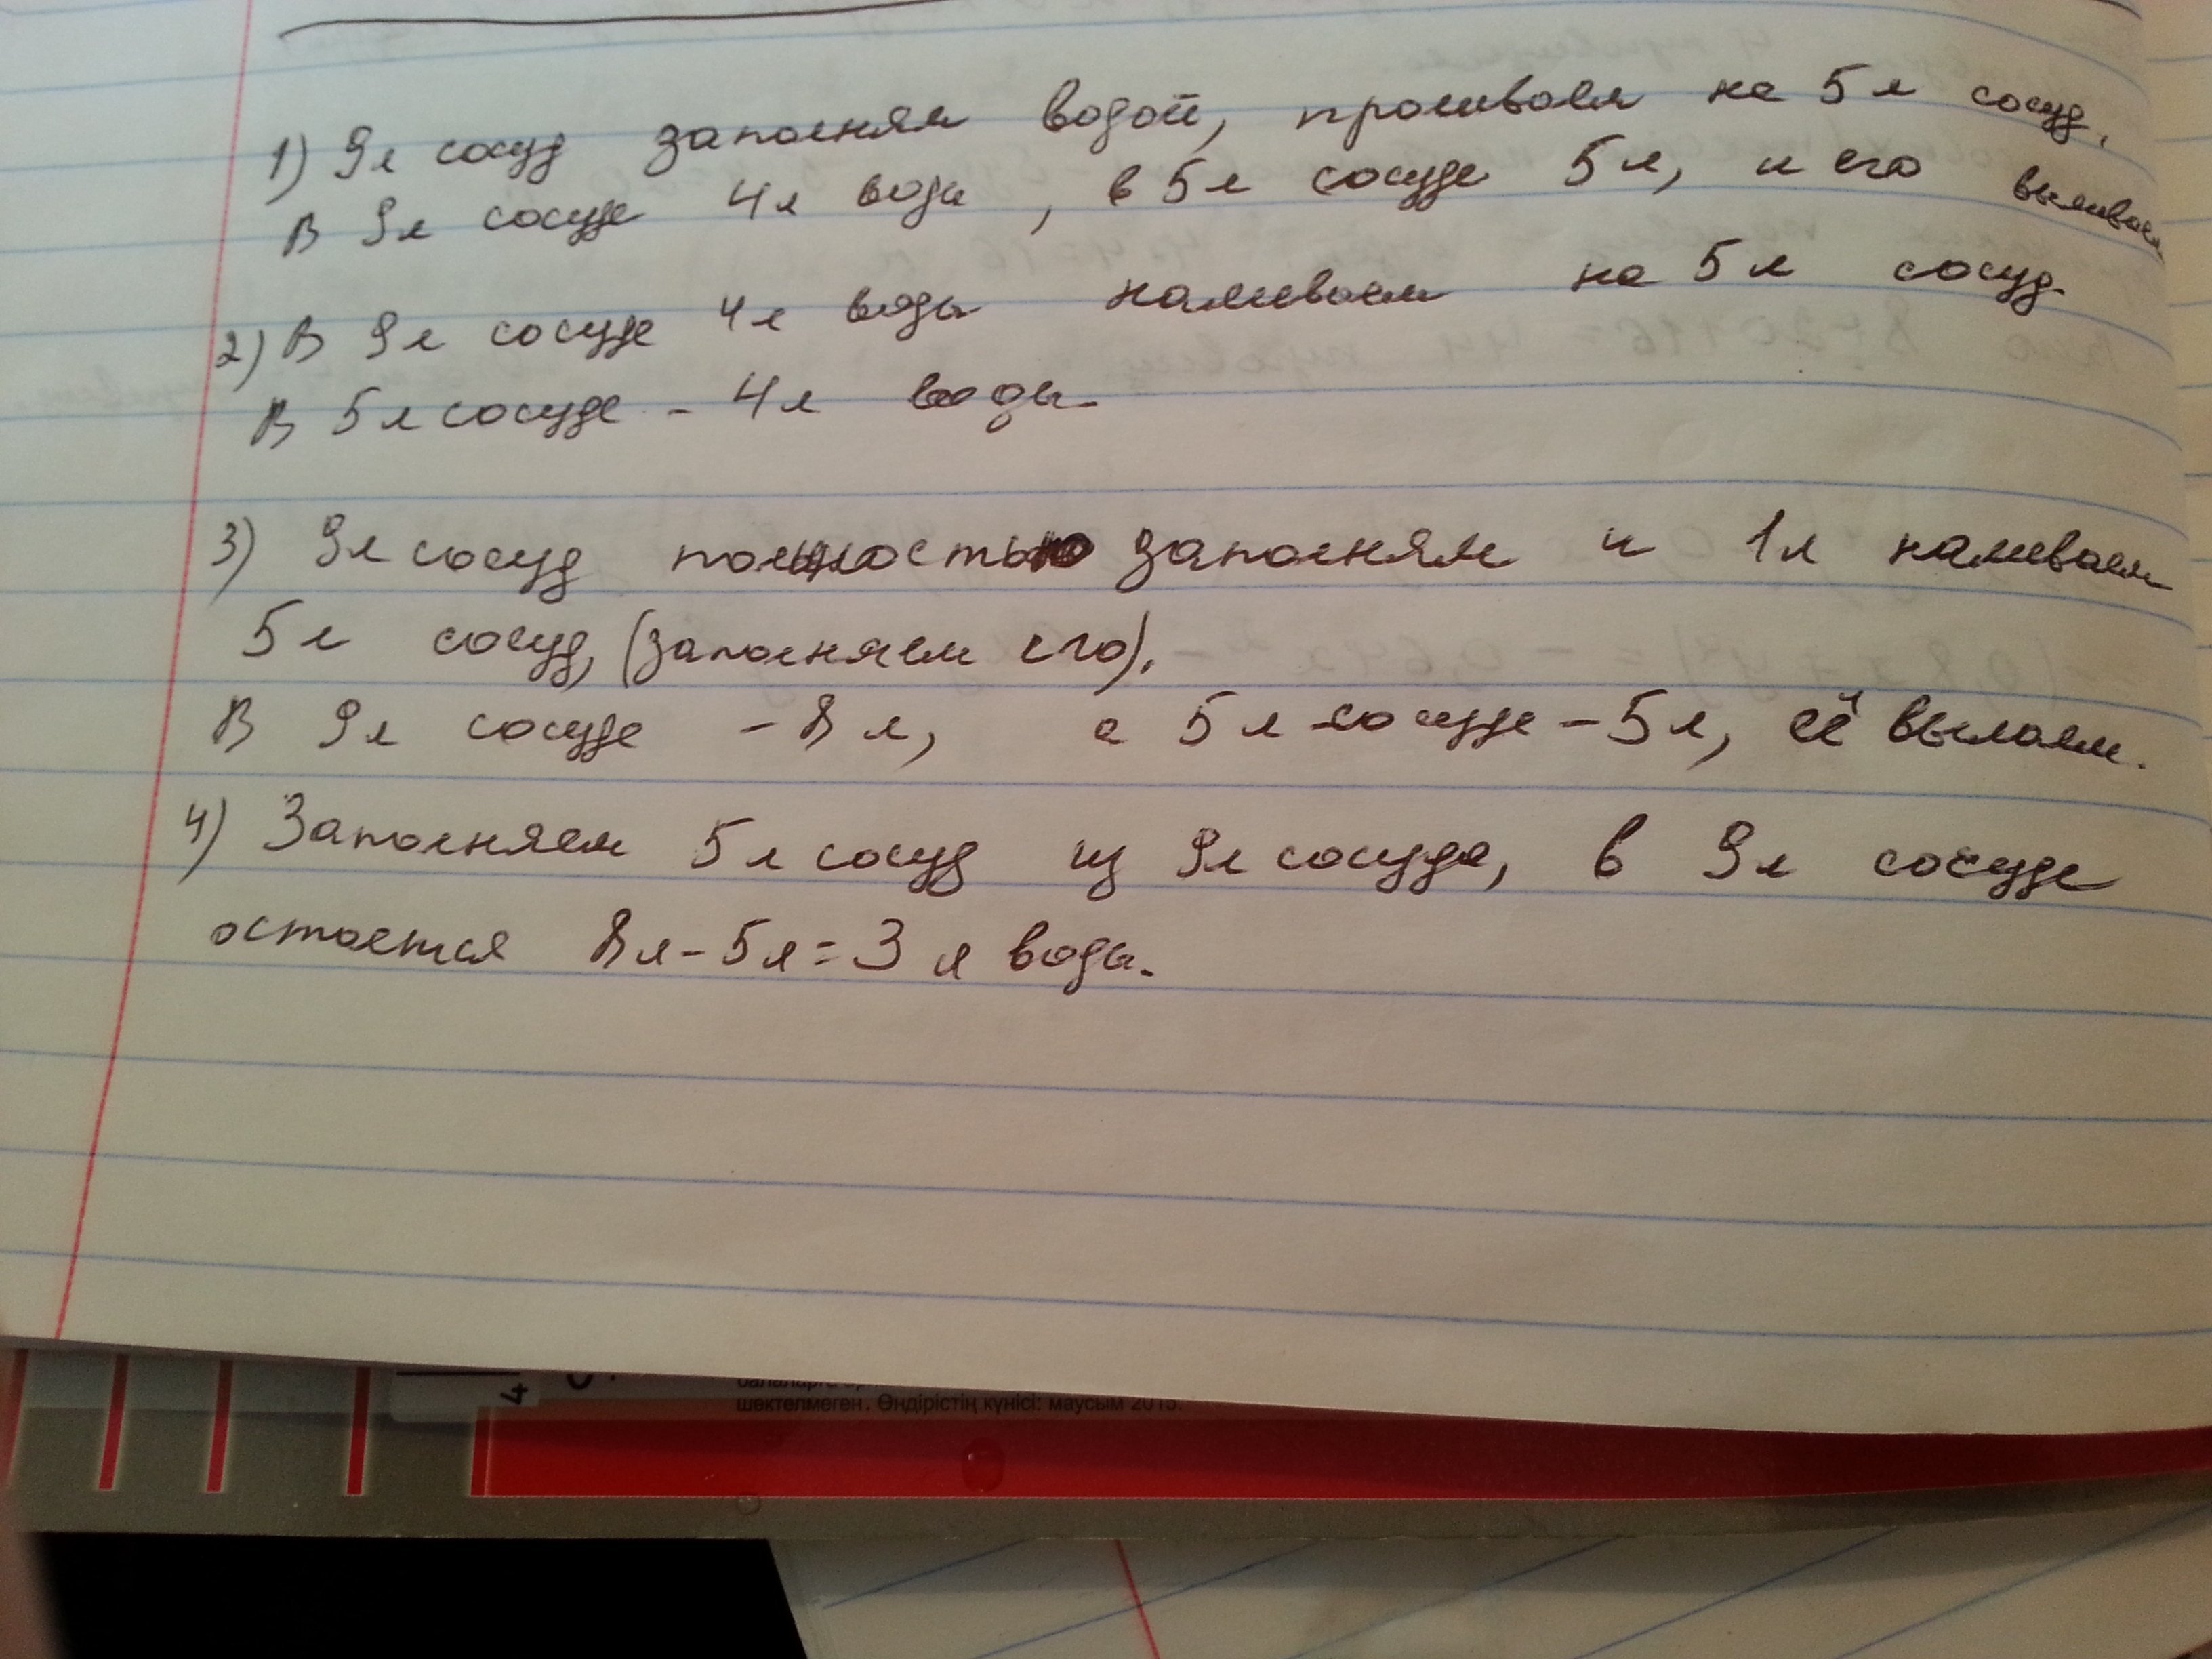 1) 9л сосуд заполням водой, проливаем на 5л сосуд.
В 9л сосуде 4л воды, в 5л сосуде 5л, и его выливаем
2) В 9л сосуде 4л воды наливаем на 5л сосуд.
В 5л сосуде - 4л воды.
3) 9л сосуд полностью заполням и 1л наливаем
5л сосуд, (заполняем его).
В 9л сосуде - 8л, а 5л сосуде - 5л, её вылаем.
4) Заполняем 5л сосуд из 9л сосуда, в 9л сосуде
остается 8л - 5л = 3л воды.
шектелмеген. Өндірістің күнісі: маусым 2015.